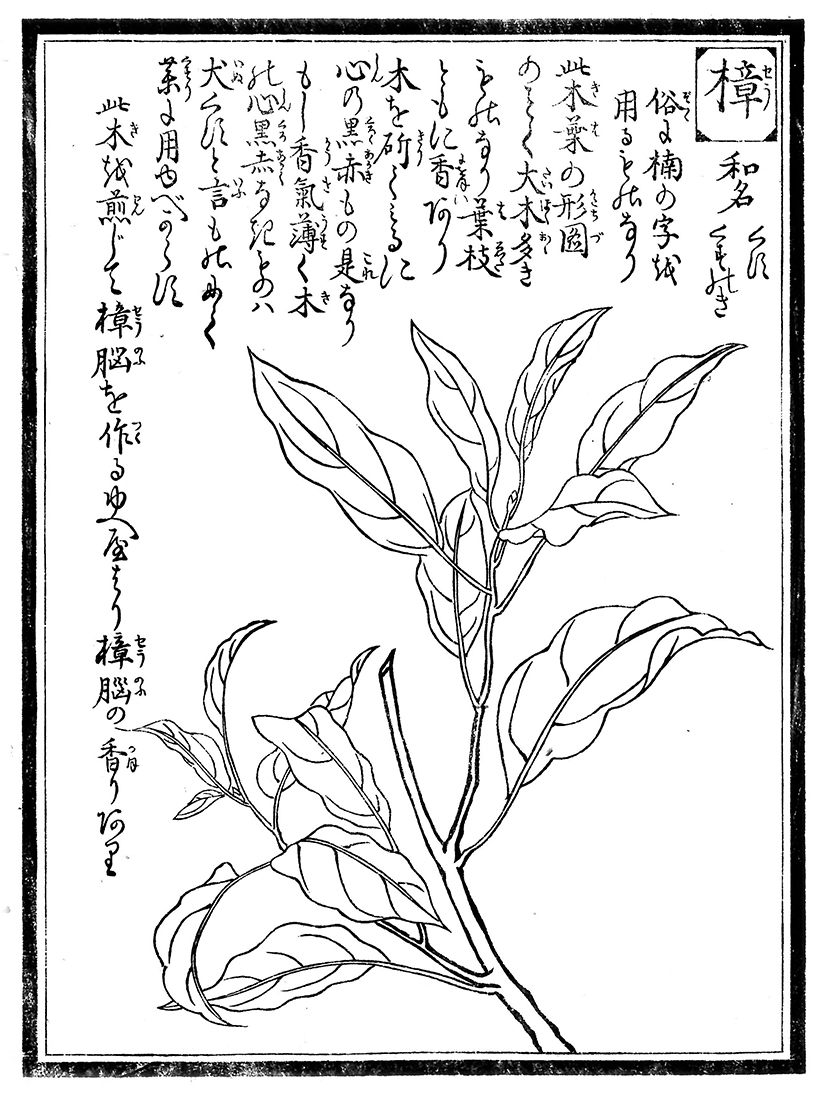 樟
和名 くす
くすのき
俗に楠の字を
用るものなり
此木葉の形圖
のことく大木多き
ものなり葉枝
ともに香あり
木を斫てみるに
心の黒赤もの是なり
もし香氣薄く木
の心黒赤なきものハ
犬くすと言もの
薬に用ゆべからす
此木を煎じて樟脳を作るゆへ より樟脳の香りあり